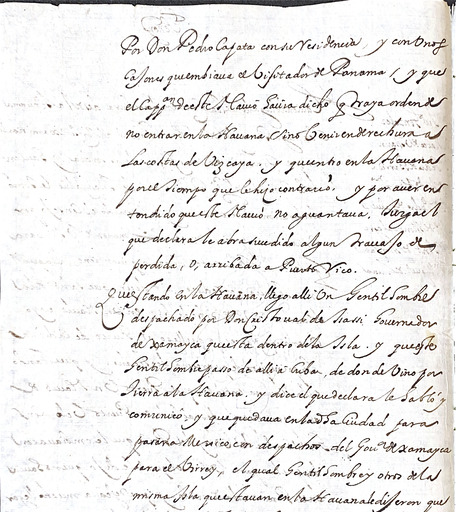 Por Don Pedro Capata con su Residencia, y con Unos
Caxones que embiaua el Visitador de Panama, y que
el Capp.n de este Nauio hauia dicho q traya orden de
no entrar en la Hauana, sino Venir en derechura a
Las costas de Vizcaya. y que entro en la Hauana
por el tiempo que le hizo contrario. y por auer en
tendido que este Nauio no aguantaua, Juzga el
que declara le abra sucedido algun trauajo de
perdida, o, arribada a Puerto Rico.
Que estando en la Hauana, llego alli Un Gentil hombre
despachado por Don Cristoual de Isassi Gouernador
de Xamayca que esta dentro de la Isla. y que este
Gentil hombre passo de alli a Cuba, de donde Vino por
tierra a la Hauana, y dice el que declara le hablo y
comunico, y que quedaua en la dha Ciudad para
passar a Mexico, con despachos del Gou.r de Xamayca
para el Virrey, el qual Gentil hombre y otros de la
misma Isla que estauan en la Hauana le dijeron que